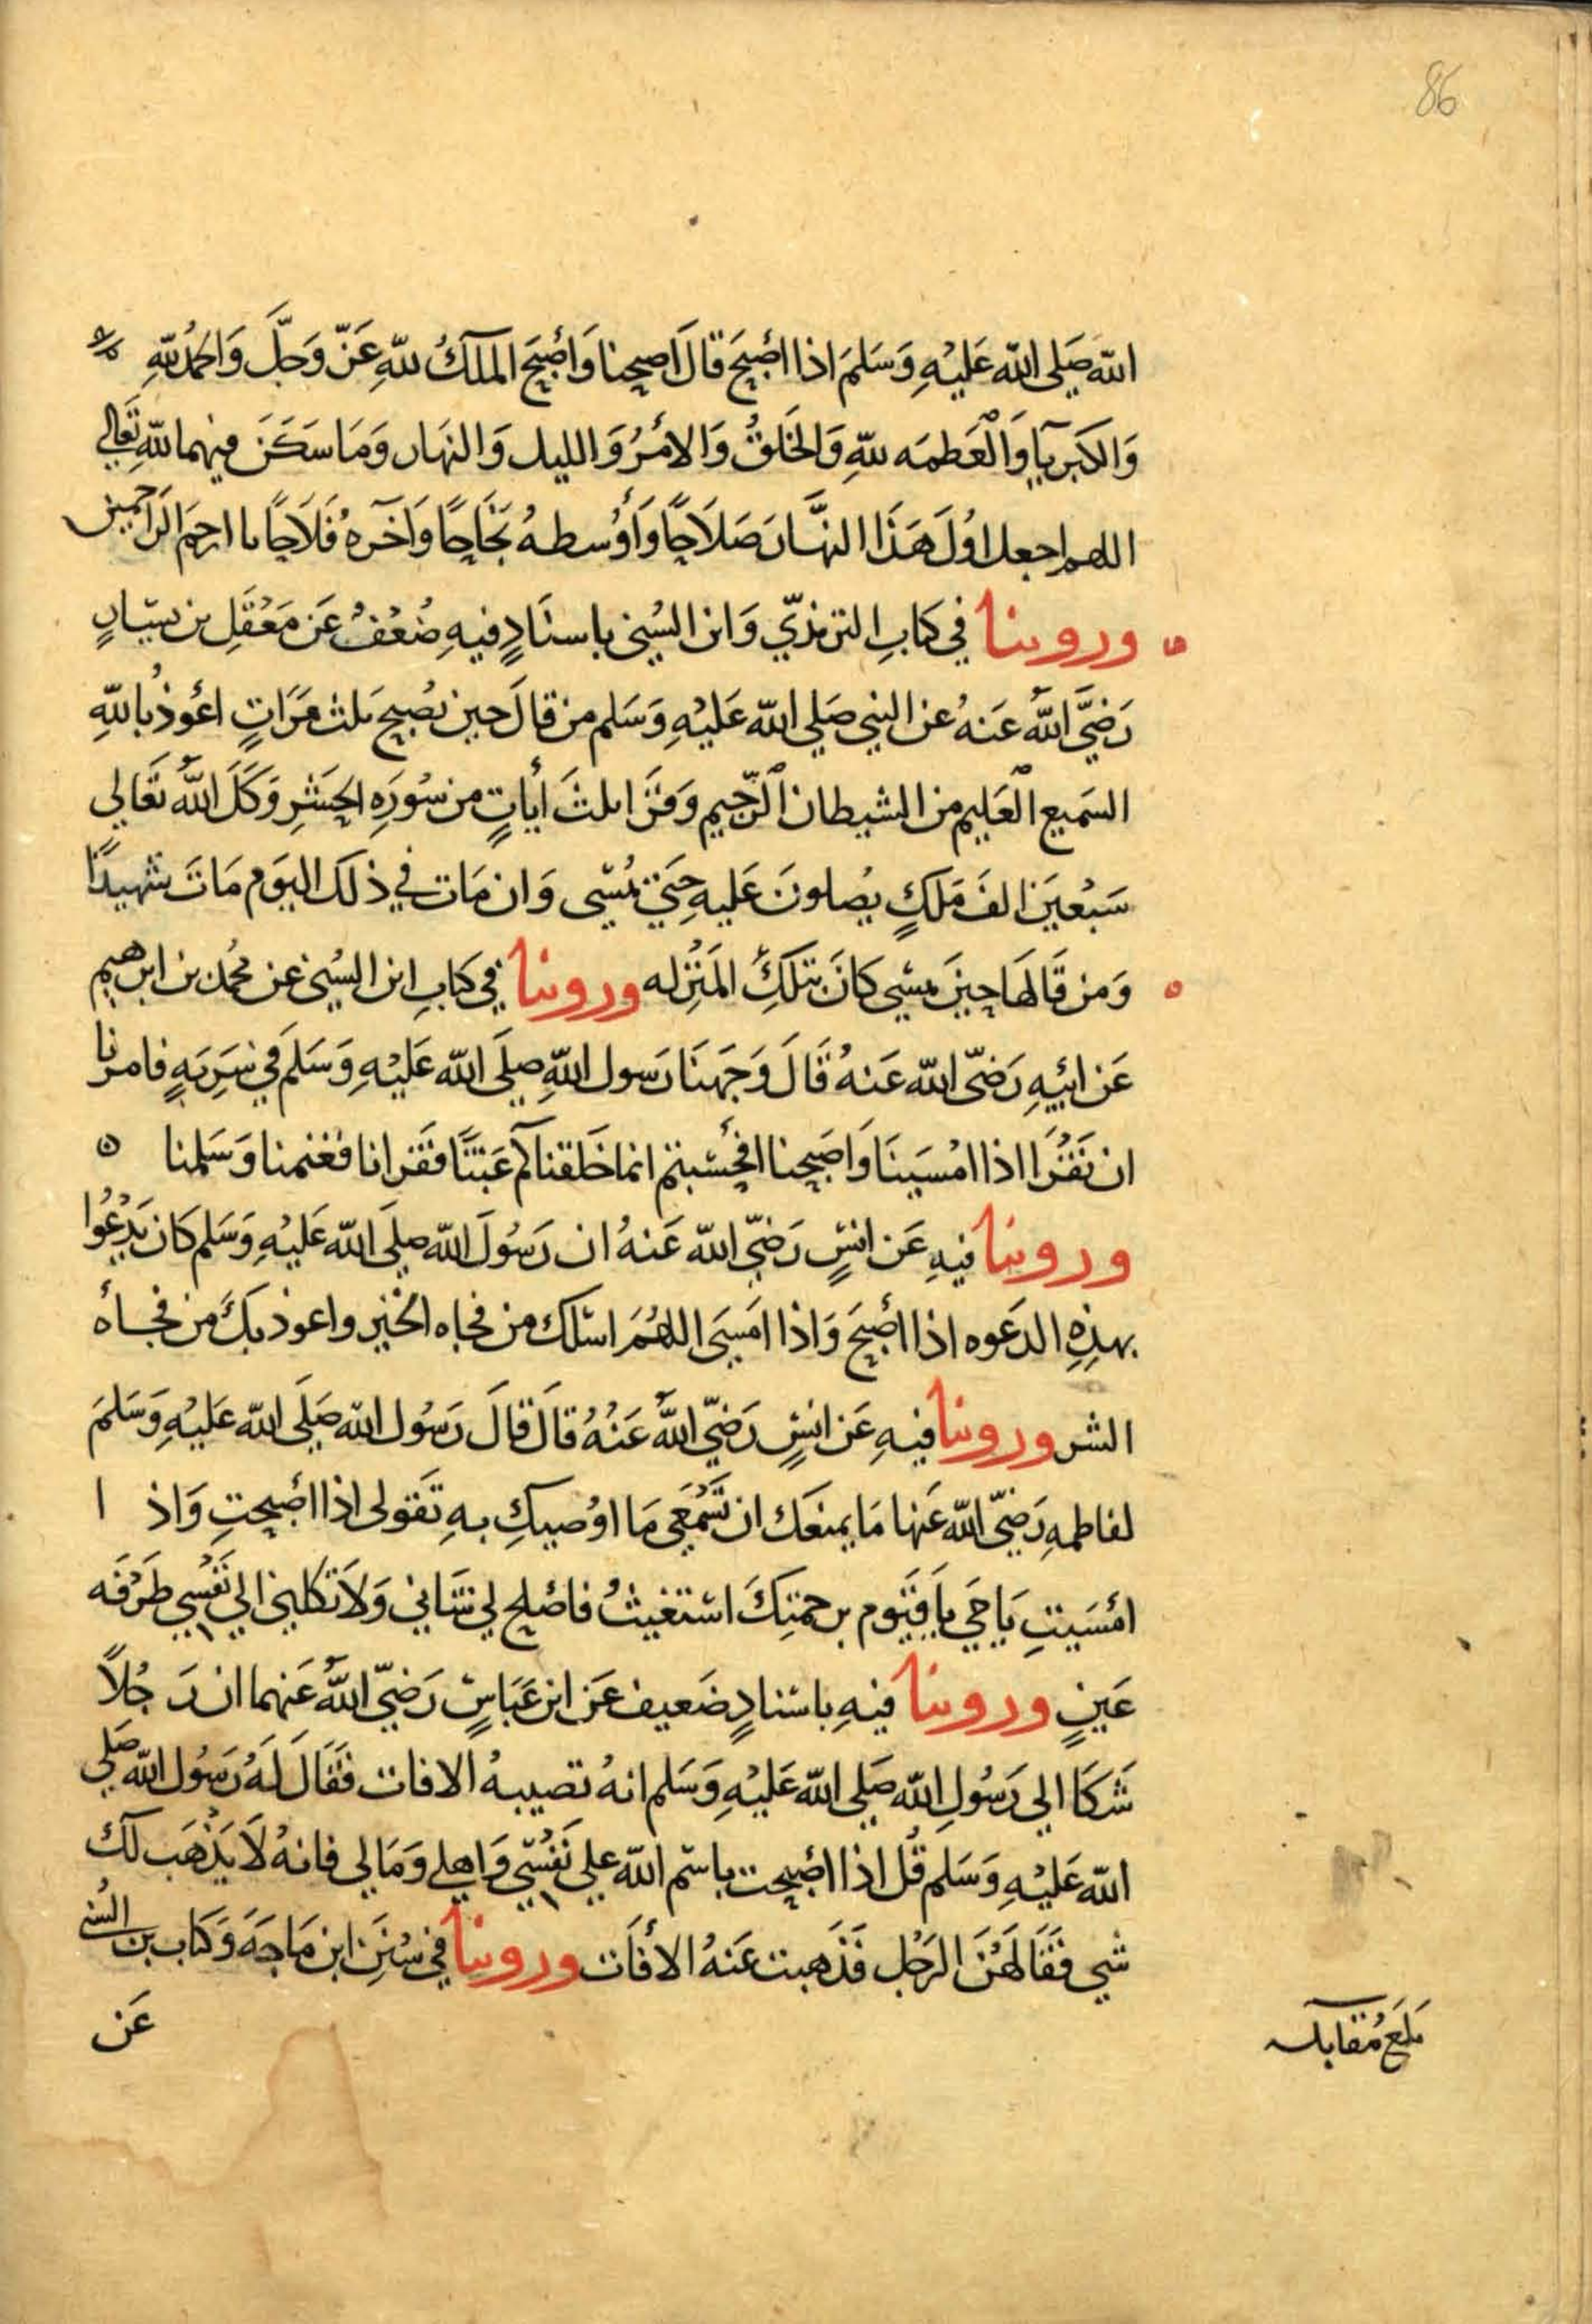 86
الله صَلى الله عَليْهِ وَسَلمَ اذا اصْبَحَ قالَ اصبحنا وَأصْبَحَ الملكُ للهِ عَزّ وَجلَّ وَالحمْدُ للهِ
وَالكبريآ وَالْعَظمَه للهِ وَالخَلقُ وَالامْرُ وَالليل وَالنهَار وَمَا سَكَنَ فيهما للهِ تَعَالي
اللهم اجعل اوُلَ هَذَا النهَّارَ صَلاَحًا وَأوْسطهُ نجَاحًا وَآخرهُ فَلاَحًا يا ارحمَ الرَاحمين
وروينا في كتابِ الترمذيّ وَابن السُني باسنَادٍ فيهِ ضُعْفُ عَن مَعْقَلِ بن يسَارٍ
رَضيَّ اللَّه عَنهُ عن النبي صَلي الله عَليْهِ وَسَلم من قالَ حين يصُبح ثلث مَرَاتٍ اعُوذُ بالله
السَميع الْعَليم من الشيطان الرَّجيم وَقرَا ثلثَ أياتٍ من سُورَهِ الحشرِ وَكَلَ اللَّه تَعَالي
سَبْعينَ الفَ مَلكٍ يصُلونَ عَليهِ حتيَ يمُسْي وَان مَات في ذلكَ اليوَم مَاتَ شهيدًا
وَمن قَالهَا حينَ يمسي كانَ بتلكَ المَنزِله وروينا في كتابِ ابن السُني عن محُمد بن ابرهيم
عَن ابيْهِ رَضيّ الله عَنهُ قَالَ وَجَهنَا رَسول اللهِ صلَي الله عَليْهِ وَسَلمَ في سَرَيهٍ فامرنا
ان نَقْرَا اذا امْسَينَا وَاصَبحنا افحسْبتم انما خَلقناكم عَبَثًا فَقرانا فغنمنا وَسَلمنا
وروينا فيهِ عَن انسٍ رَضيّ الله عَنهُ ان رَسُولَ الله صلَي الله عَليْهِ وَسَلم كانَ يَدْعُوا
بهذِهِ الدَعوه اذا أصْبَحَ وَاذا امَسَي اللهُمَ اسئلك من فجاه الخيْر واعوذ بكَ من فجأه
الشر وروينا فيهِ عَن انسٍ رَضيّ اللَّه عَنْهُ قالَ قالَ رَسُول الله صَلَي الله عَليْهِ وَسَلمَ
لفاطمهِ رَضيّ الله عَنها مَا يمنعَك ان تسْمَعَي مَا اوُصيكِ بهِ تَقولى اذا اصْبحتِ وَاذ ا
امْسَيتِ يَا حَي يا قَيَوم برحمتِكَ اسْتغيثُ فاصْلح لي شَاني وَلاَ تكلني الي نفَسْي طَرْفَه
عَينٍ وروينا فيهِ باسْنادٍ ضَعيف عَن ابن عَبَاسٍ رَضيّ اللَّه عَنهما ان رَجُلاً
شَكَا الي رَسُولِ الله صَلي الله عَليْهِ وَسَلم انهُ تصيبهُ الافات فقَالَ لَهُ رَسُول الله صَلي
الله عَليْهِ وَسَلم قُل اذا اصْبحت باسْم الله علي نَفسْي وَاهلي وَمَالي فانهُ لاَ يَذْهَب لكَ
شي فقَالهُنَ الرَجُل فَذَهبت عَنهُ الأفَات وروينا في سُننِ ابن مَاجَهَ وَكتاب بن السُني
عَن
بلغَ مُقابله